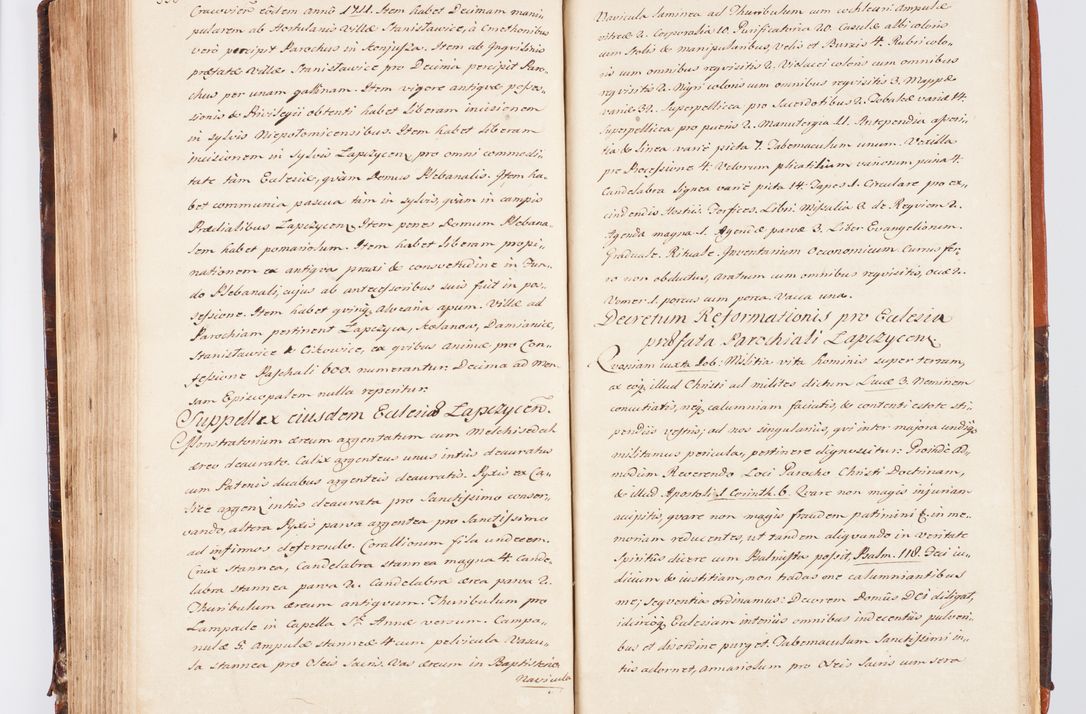 Cracovien̄ eodem anno 1711. Item habet Decimam mani-
pularem ab Hortulanis Villæ Stanisławice, à Cmethonibus
verò percipit Parochus in Xsiąsza. Item ab Inquilinis
prætatæ Villæ Stanisławice pro Decima percipit Paro-
chus per unam gallinam. Item vigore antiquæ posses-
sionis & Privilegii obtenti habet liberam incisionem
in Sylvis Niepołomicensibus. Item habet liberam
incisionem in Sylvis Łapczycen̄ pro omni commodi-
tate tàm Ecclesiæ, quàm Domus Plebanalis. Item ha-
bet communia pascua tàm in sylvis, quàm in campis
Prædialibus Łapczycen̄. Item penes Domum Plebana-
lem habet pomariolum. Item habet liberam propi-
nationem ex antiqua praxi & consvetudine in Fun-
do Plebanali, cujus ab antecessoribus suis fuit in pos-
sessione. Item habet quinq̨ Alvearia apum. Villæ ad
Parochiam pertinent Łapczyca, Kolanow, Damianice,
Stanisławice & Cikowice, ex quibus animæ pro Con-
fessione Paschali 600. numerantur. Decima ad Men-
sam Episcopalem nulla reperitur.
Suppellex ejusdem Ecclesiæ Łapczycen̄.
Monstratorium æreum argentatum cum Melchisedech
æreo deaurato. Calix argenteus unus intùs deauratus
cum Patenis duabus argenteis deauratis. Pyxis ex Ca-
lice argen̄ intùs deaurata pro Sanctissimo conser-
vando, altera Pyxis parva argentea pro Sanctissimo
ad infirmos deferendo. Coralliorum fila undecem.
Crux stannea, Candelabra stannea magna 4. Cande-
labra stannea parva 2. Candelabra ærea parva 2.
Thuribulum æreum antiquum. Thuribulum pro
Lampade in Capella S. Annæ versum. Campa-
nulæ 5. Ampulæ stanneæ 4 cum pelvicula. Vascu-
la stannea pro Oleis Sacris. Vas æreum in Baptisterio
Navicula
Navicula laminea ad Thuribulum cum cochleari ampulæ
vitreæ 2. Corporalia 10. Purificatoria 20. Casulæ albi coloris
cum Stolis & manipularibus, Velis et Bursis 4. Rubri colo-
ris cum omnibus requisitis 2. Violacei coloris cum omnibus
requisitis 2. Nigri coloris cum omnibus requisitis 3. Mappæ
variæ 32. Superpellicea pro Sacerdotibus 2. Tobaleæ variæ 14.
Superpellicea pro pueris 2. Manutergia 11. Antependia asseri-
tia & linea variè picta 7. Tabernaculum unum. Vexilla
pro Processione 4. Velorum plicatilium variorum paria 4.
Candelabra lignea variè picta 14. Tapes 1. Circulare pro ex-
cindendis Hostiis Forfices. Libri: Missalia 2. de Requiem 2.
Agenda magna 1. Agendæ parvæ 3. Liber Evangeliorum.
Graduale. Rituale. Inventarium Oeconomicum. Currus fer-
ro non obductus, aratrum cum omnibus requisitis, Ocæ 2.
Vomer 1. porcus cum porca. Vacca una.
Decretum Reformationis pro Ecclesia
præfata Parochiali Łapczycen̄.
Quoniam iuxta Iob: Militia vita hominis super terram,
ex eoq̨ illud Christi ad milites dictum Lucæ 3. Neminem
concutiatis, neq̨ calumniam faciatis, & contenti estote sti-
pendiis vestris, ad nos singulariùs, qui inter majora undiq̨
militamus pericula, pertinere dignoscitur: Proinde ad-
modùm Reverendo Loci Parocho Christi doctrinam,
& illud Apostoli 1. Corinth. 6. Quare non magis injuriam
accipitis, quare non magis fraudem patimini &, in me-
moriam reducentes, ut tandem aliquando in veritate
Spiritûs dicere cum Psalmista possit, Psalm. 118. Feci iu-
dicium & iustitiam, non tradas me calumniantibus
me; sequentia ordinamus: Decorem Domûs DEI diligat,
idcircoq̨ Ecclesiam interiùs omnibus indecentiis pulveri-
bus et disordine purget. Tabernaculum Sanctissimi in-
tùs adornet, armariolum pro Oleis Sacris cum sera